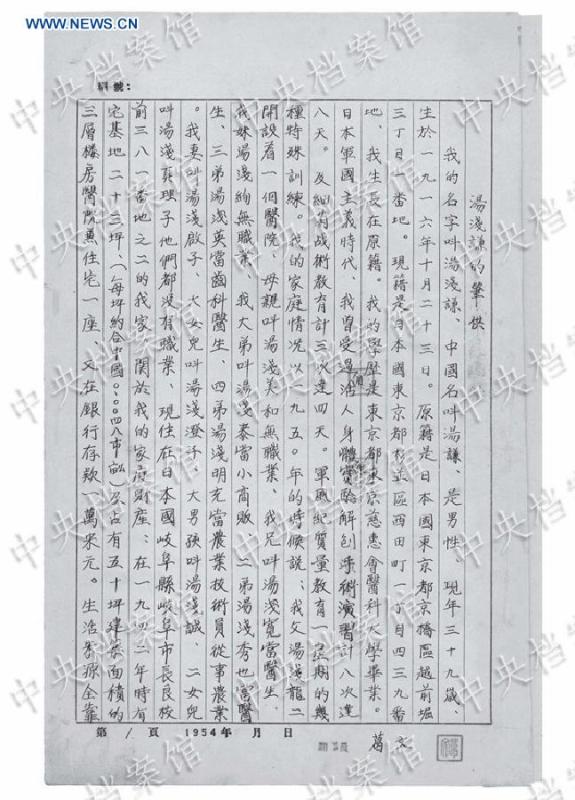 WWW.NEWS.CN
中央档案馆
編號:
湯淺謙的筆供
我的名字叫湯淺謙、中國名叫湯謙、是男性、現年三十九歲、
生於一九一六年十月二十三日。原籍是日本國東京都京橋區越前堀
三丁目一番地。現籍是日本國東京都杉並區西田町一丁目四三九番
地、我生長在原籍。我的學歷是東京都東京慈惠會醫科大學畢業。
日本軍國主義時代、我曾受過活人身體實驗解剖手術演習計八次達
八天。及細菌战術教育計三次達四天。軍風紀質量教育一星期的幾
種特殊訓練。我的家庭情况以一九五〇年的時候說:我父湯淺龍二
開設着一個醫院、母親叫湯淺美和無職業、我兄叫湯淺寬當醫生、
我妹湯淺絢無職業、我大弟叫湯淺泰當小商販、二弟湯淺秀也當醫
生、三弟湯淺英當齒科醫生、四弟湯淺明充當農業技術員從事農業
。我妻叫湯淺啟子、大女兒叫湯淺澄子、大男孩叫湯淺誠、二女兒
叫湯淺真理子他們都沒有職業、現住在日本國岐阜縣岐阜市長良校
前三八一番地之二的我家、關於我的家庭財產:在一九四二年時有
宅基地二十三坪、(每坪約合中國〇.〇〇四八市畝)及占有五十坪建築面積的
三層樓房醫院兼住宅一座、又在銀行存欵一萬米元。生活來源全靠
第 1 頁 1954年 月 日